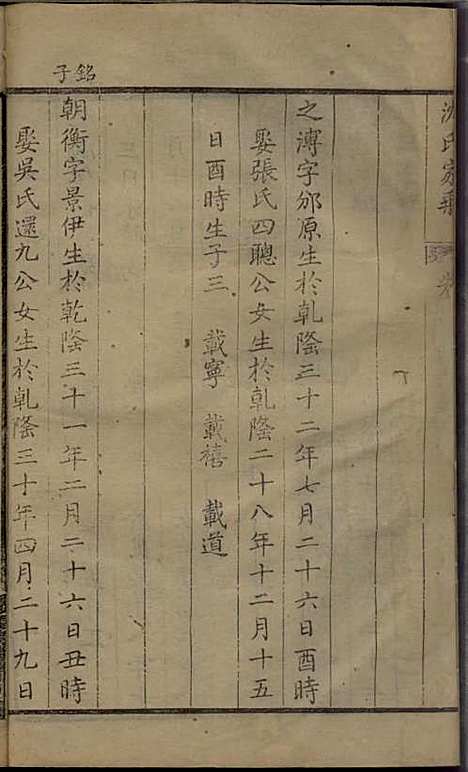 沈氏家乘
卷
之溥字邠原生於乹隆三十二年七月二十六日酉時
娶張氏四聰公女生於乹隆二十八年十二月十五
日酉時生子三 載寧 載禧 載道
銘子
朝衡字景伊生於乾隆三十一年二月二十六日丑時
娶吳氏還九公女生於乹隆三十年四月二十九日